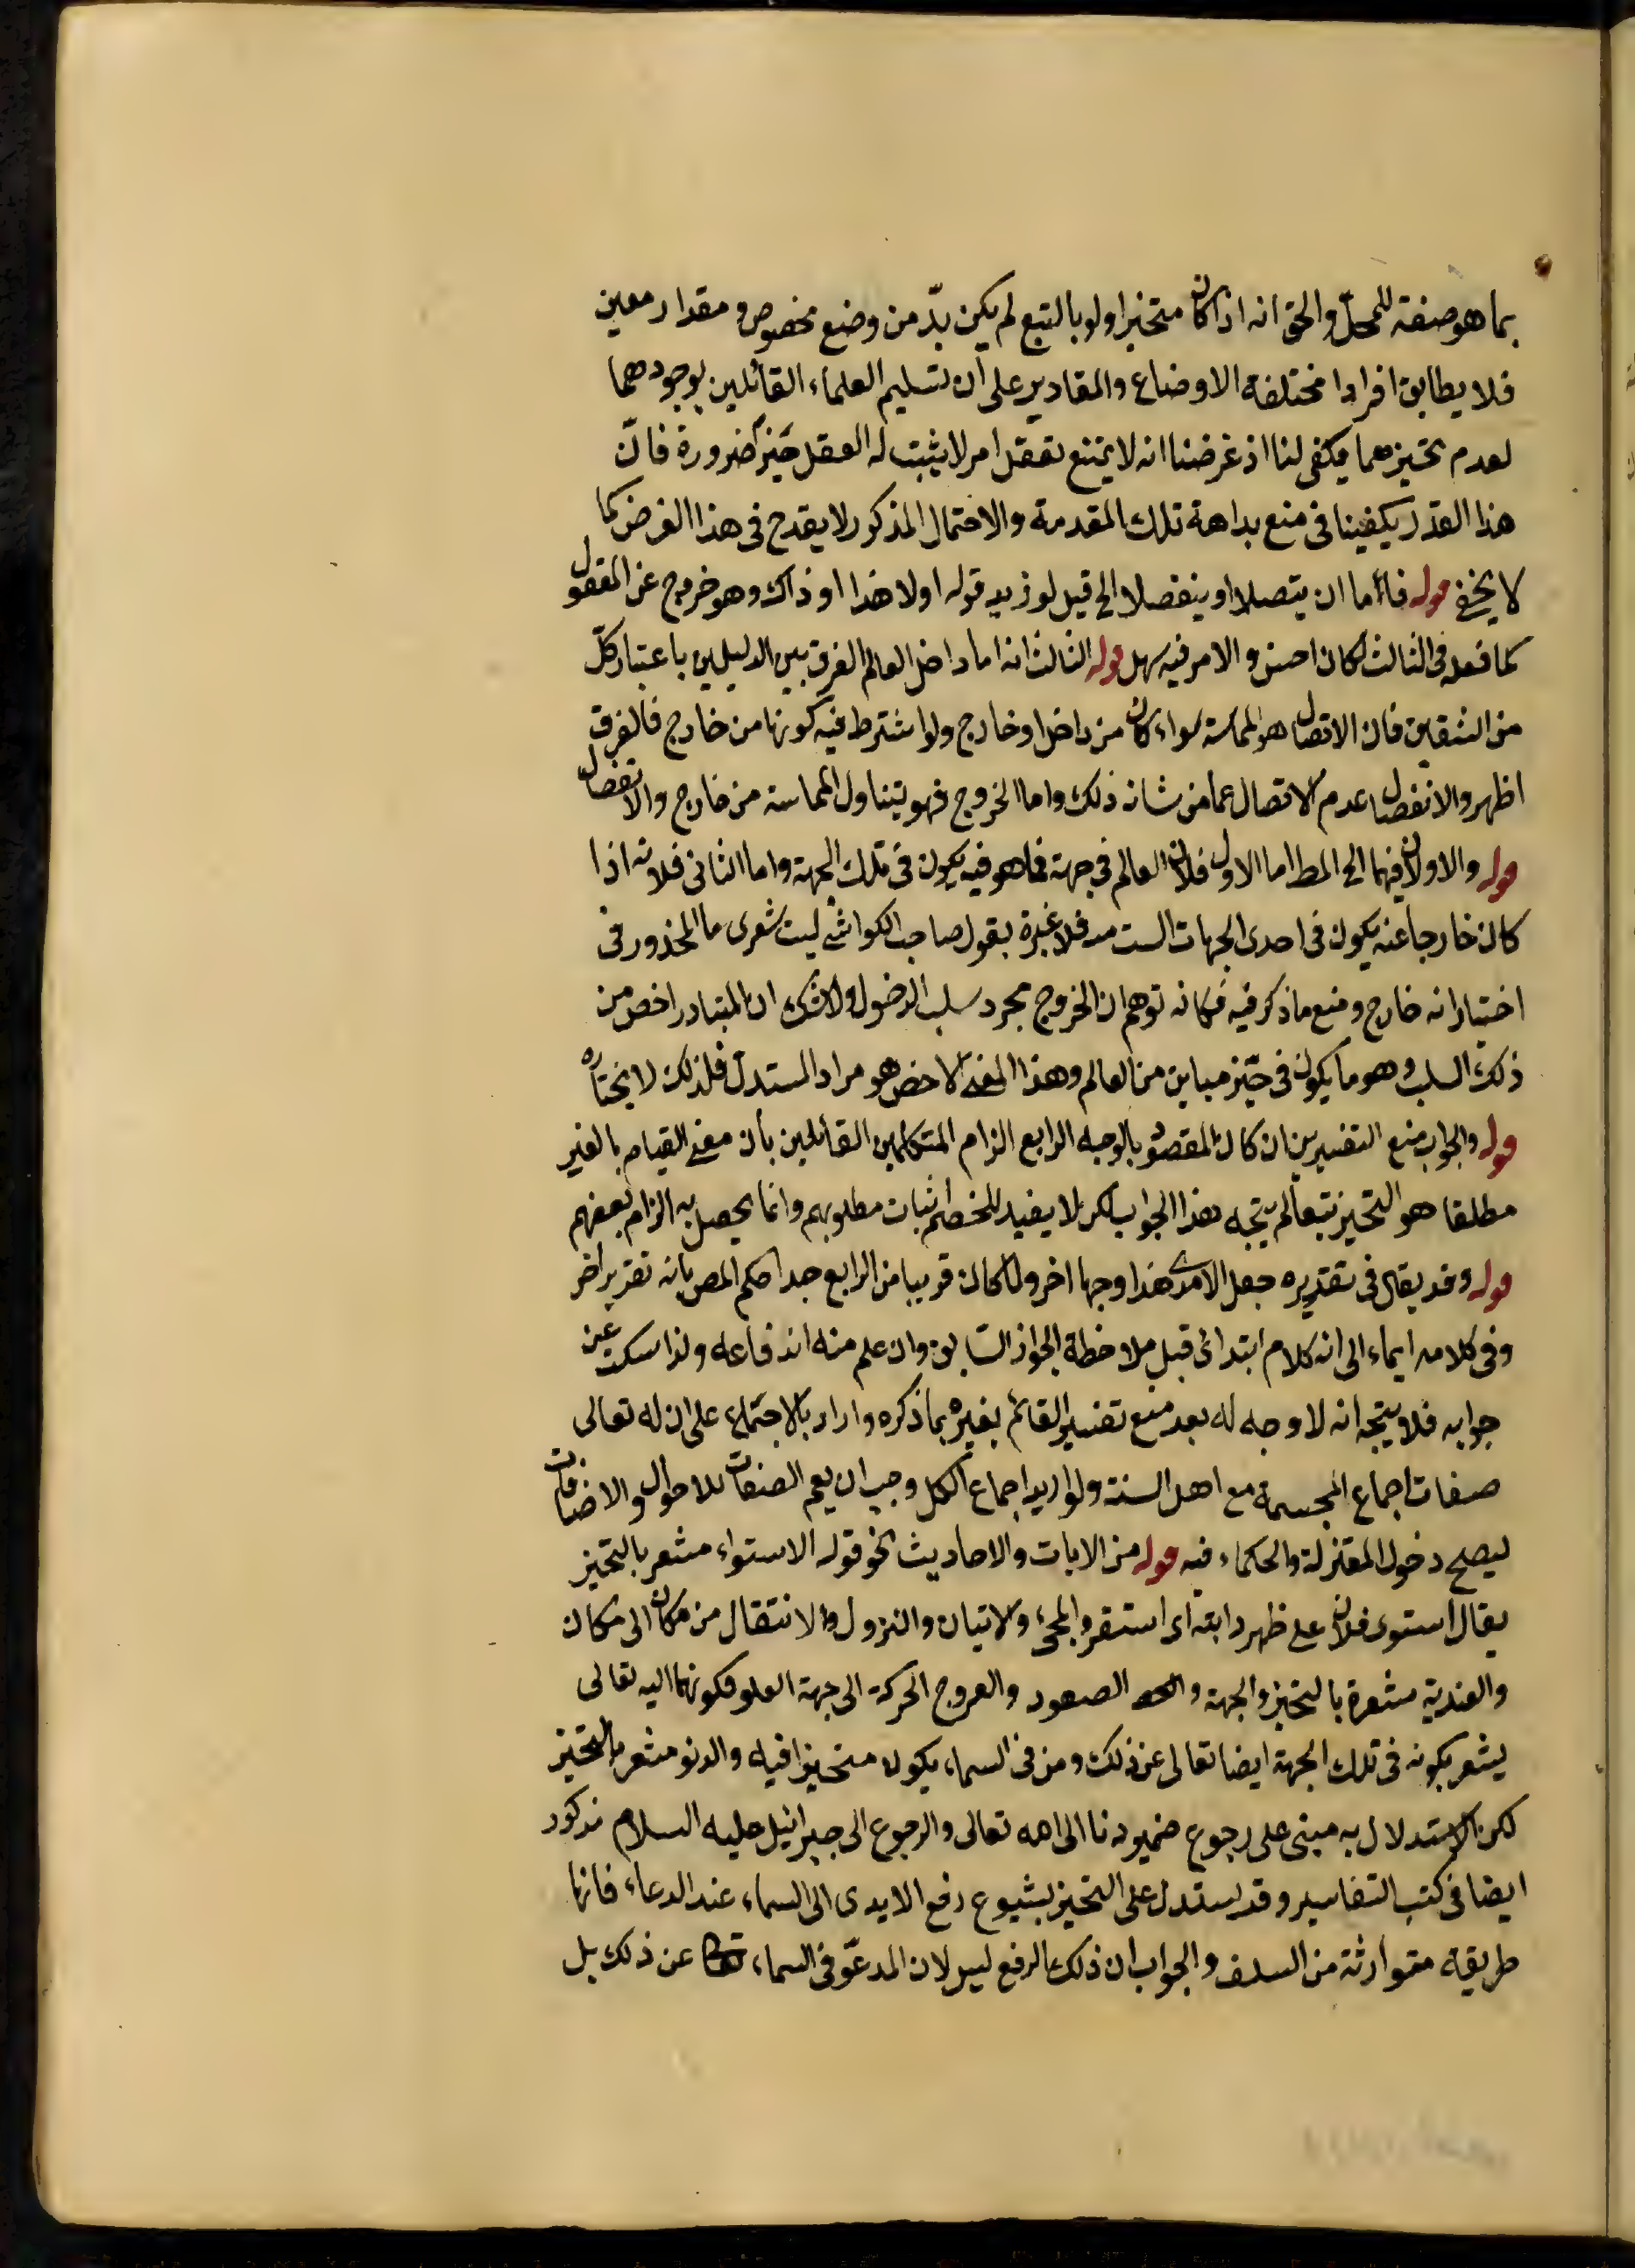 بما هو صفة للمحلّ والحق انه اذا كان متحيزا ولو بالتبع لم يكن بدّ من وضع مخصوص و مقدار معين
فلا يطابق افرادا مختلفة الاوضاع والمقادير على ان تسليم العلماء القائلين بوجودهما
لعدم تحيزهما يكفى لنا اذ غرضنا انه لا يمتنع تعقل امر لا يثبت له العقل حيّزا ضرورة فانّ
هذا القدر يكفينا فى منع بداهة تلك المقدمة والاحتمال المذكور لا يقدح فى هذا الغرض كما
لا يخفى قوله فاما ان يتصلا او ينفصلا الخ قيل لو زيد قوله اولا هذا او ذاك وهو خروج عن المعقول
كما فعله فى الثالث لكان احسن والامر فيه سهل قوله الثالث انه اما داخل العالم الفرق بين الدليلين باعتبار كلّ
من الشقين فان الاتصال هو المماسة سواء كان من داخل او خارج ولو اشترط فيه كونها من خارج فالفرق
اظهر والانفصال عدم الاتصال عما من شانه ذلك واما الخروج فهو يتناول المماسة من خارج والانفصال
قوله والاولان فيهما الخ المط اما الاول فلان العالم فى جهة فما هو فيه يكون فى تلك الجهة واما الثانى فلانه اذا
كان خارجا عنه يكون فى احدى الجهات الست منه فلا عبرة بقول صاحب الكواشى ليت شعرى ما المحذور فى
اختيار انه خارج ومنع ما ذكر فيه فكانه توهم ان الخروج مجرد سلب الدخول ولا شك ان المتبادر اخص من
ذلك السلب وهو ما يكون فى حيّز مباين من العالم وهذا المعنى الاخص هو مراد المستدل فلذلك لا يختاره
قوله والجواب منع التفسيرين ان كان المقصود بالوجه الرابع الزام المتكلمين القائلين بأن معنى القيام بالغير
مطلقا هو التحيز تبعا لم يتجه هذا الجواب لكن لا يفيد للخصم اثبات مطلوبهم وانما يحصل به الزام بعضهم
قوله وقد يقال فى تقديره جعل الامدى هذا وجها اخر ولما كان قريبا من الرابع جدا حكم المص بانه تقرير اخر
وفى كلامه ايماء الى انه كلام ابتدائى قبل ملاحظة الجواز السابق وان علم منه اندفاعه ولذا سكت عن
جوابه فلا يتجه انه لا وجه له بعد منع تفسير القائم بغيره بما ذكره واراد بالاجتماع على ان له تعالى
صفات اجماع المجسمة مع اهل السنة ولو اريد اجماع الكل وجب ان يعم الصفات للاحوال والاضافات
ليصح دخول المعتزلة والحكماء فيه قوله من الايات والاحاديث نحو قوله الاستواء مشعر بالتحيز
يقال استوى فلان على ظهر دابته اى استقر والمجئ والاتيان والنزول والانتقال من مكان الى مكان
والعندية مشعرة بالتحيز والجهة الصعود والعروج الحركة الى جهة العلو فكونهما اليه تعالى
يشعر بكونه فى تلك الجهة ايضا تعالى عن ذلك ومن فى السماء يكون متحيزا فيه والدنو مشعر بالتحيز
لكن الاستدلال به مبنى على رجوع ضمير دنا الى الله تعالى والرجوع الى جبرائيل عليه السلام مذكور
ايضا فى كتب التفاسير وقد يستدل على التحيز بشيوع رفع الايدى الى السماء عند الدعاء فانها
طريقة متوارثة من السلف والجواب ان ذلك الرفع ليس لان المدعوّ فى السماء تعالى عن ذلك بل